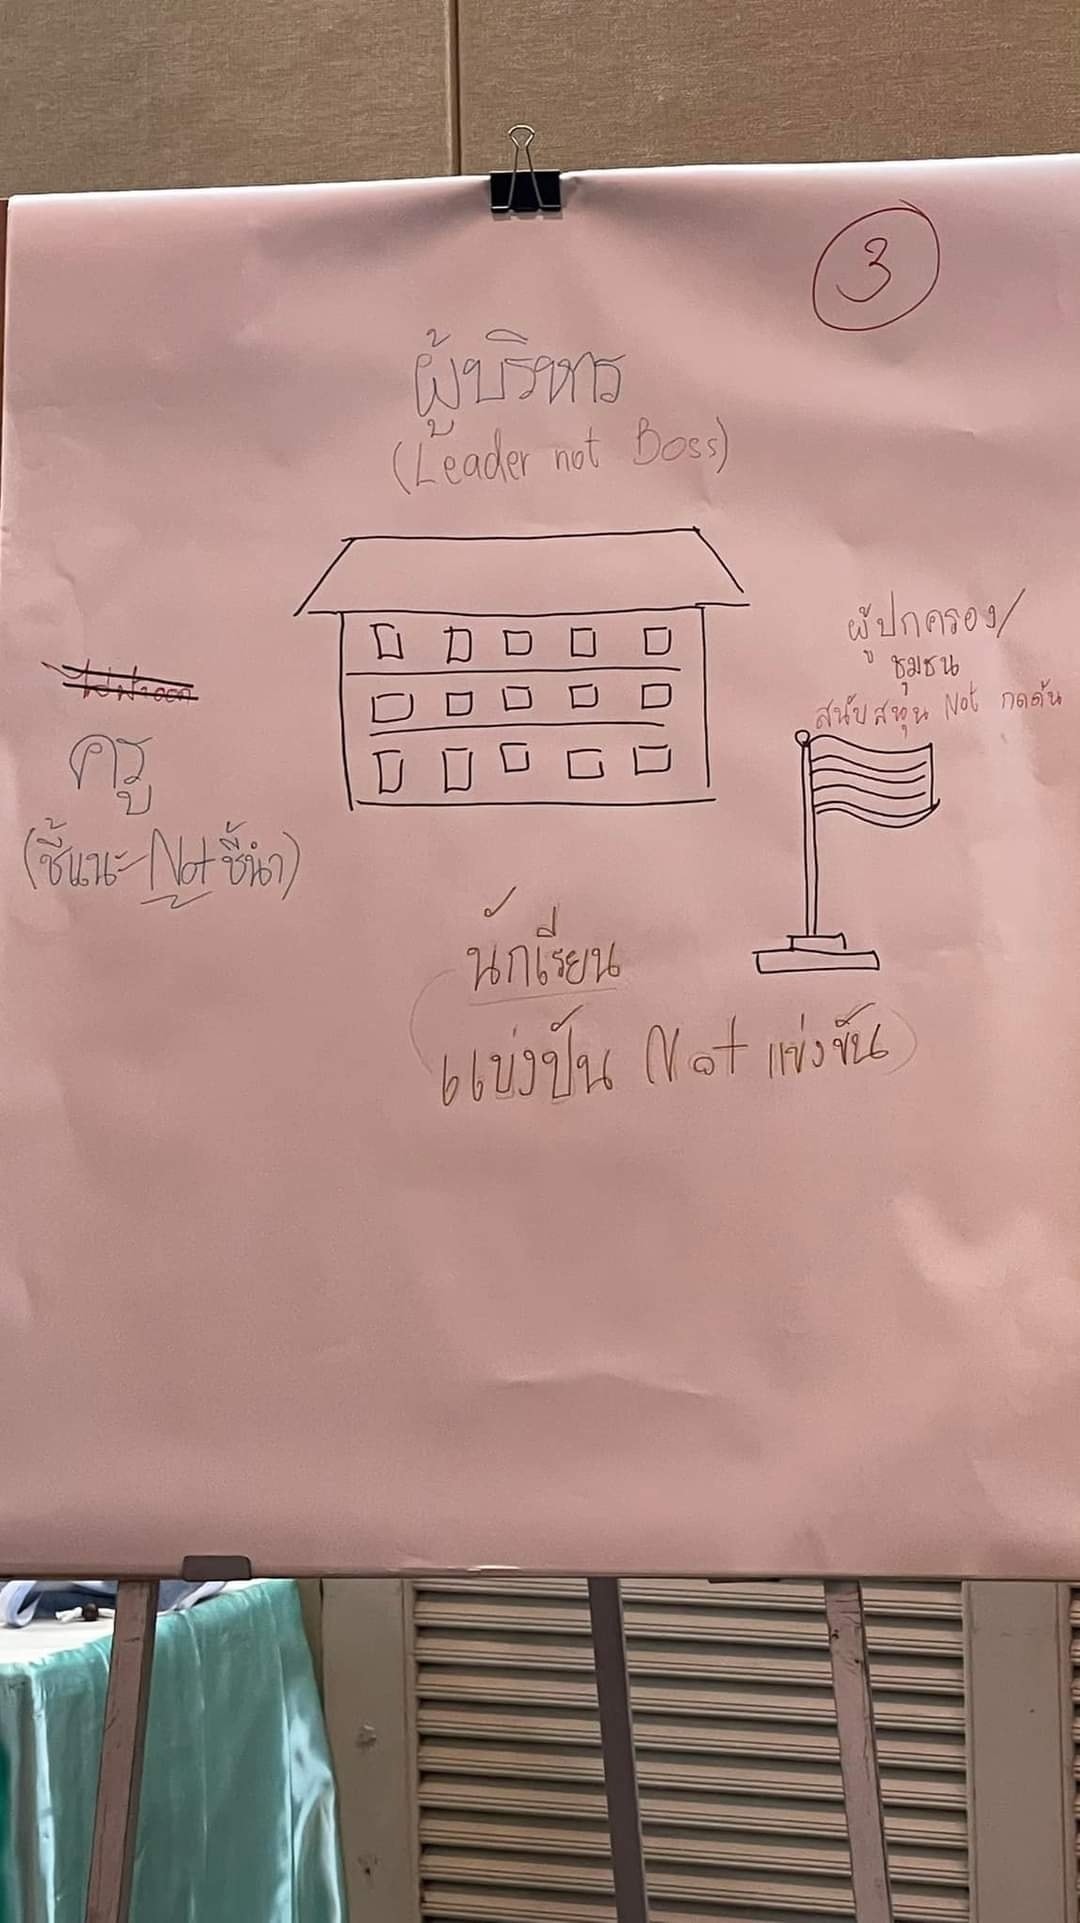 3
ผู้บริหาร
(Leader not Boss)
ผู้ปกครอง/
ชุมชน
สนับสนุน Not กดดัน
ครู
(ชี้แนะ Not ชี้นำ)
นักเรียน
แบ่งปัน Not แข่งขัน